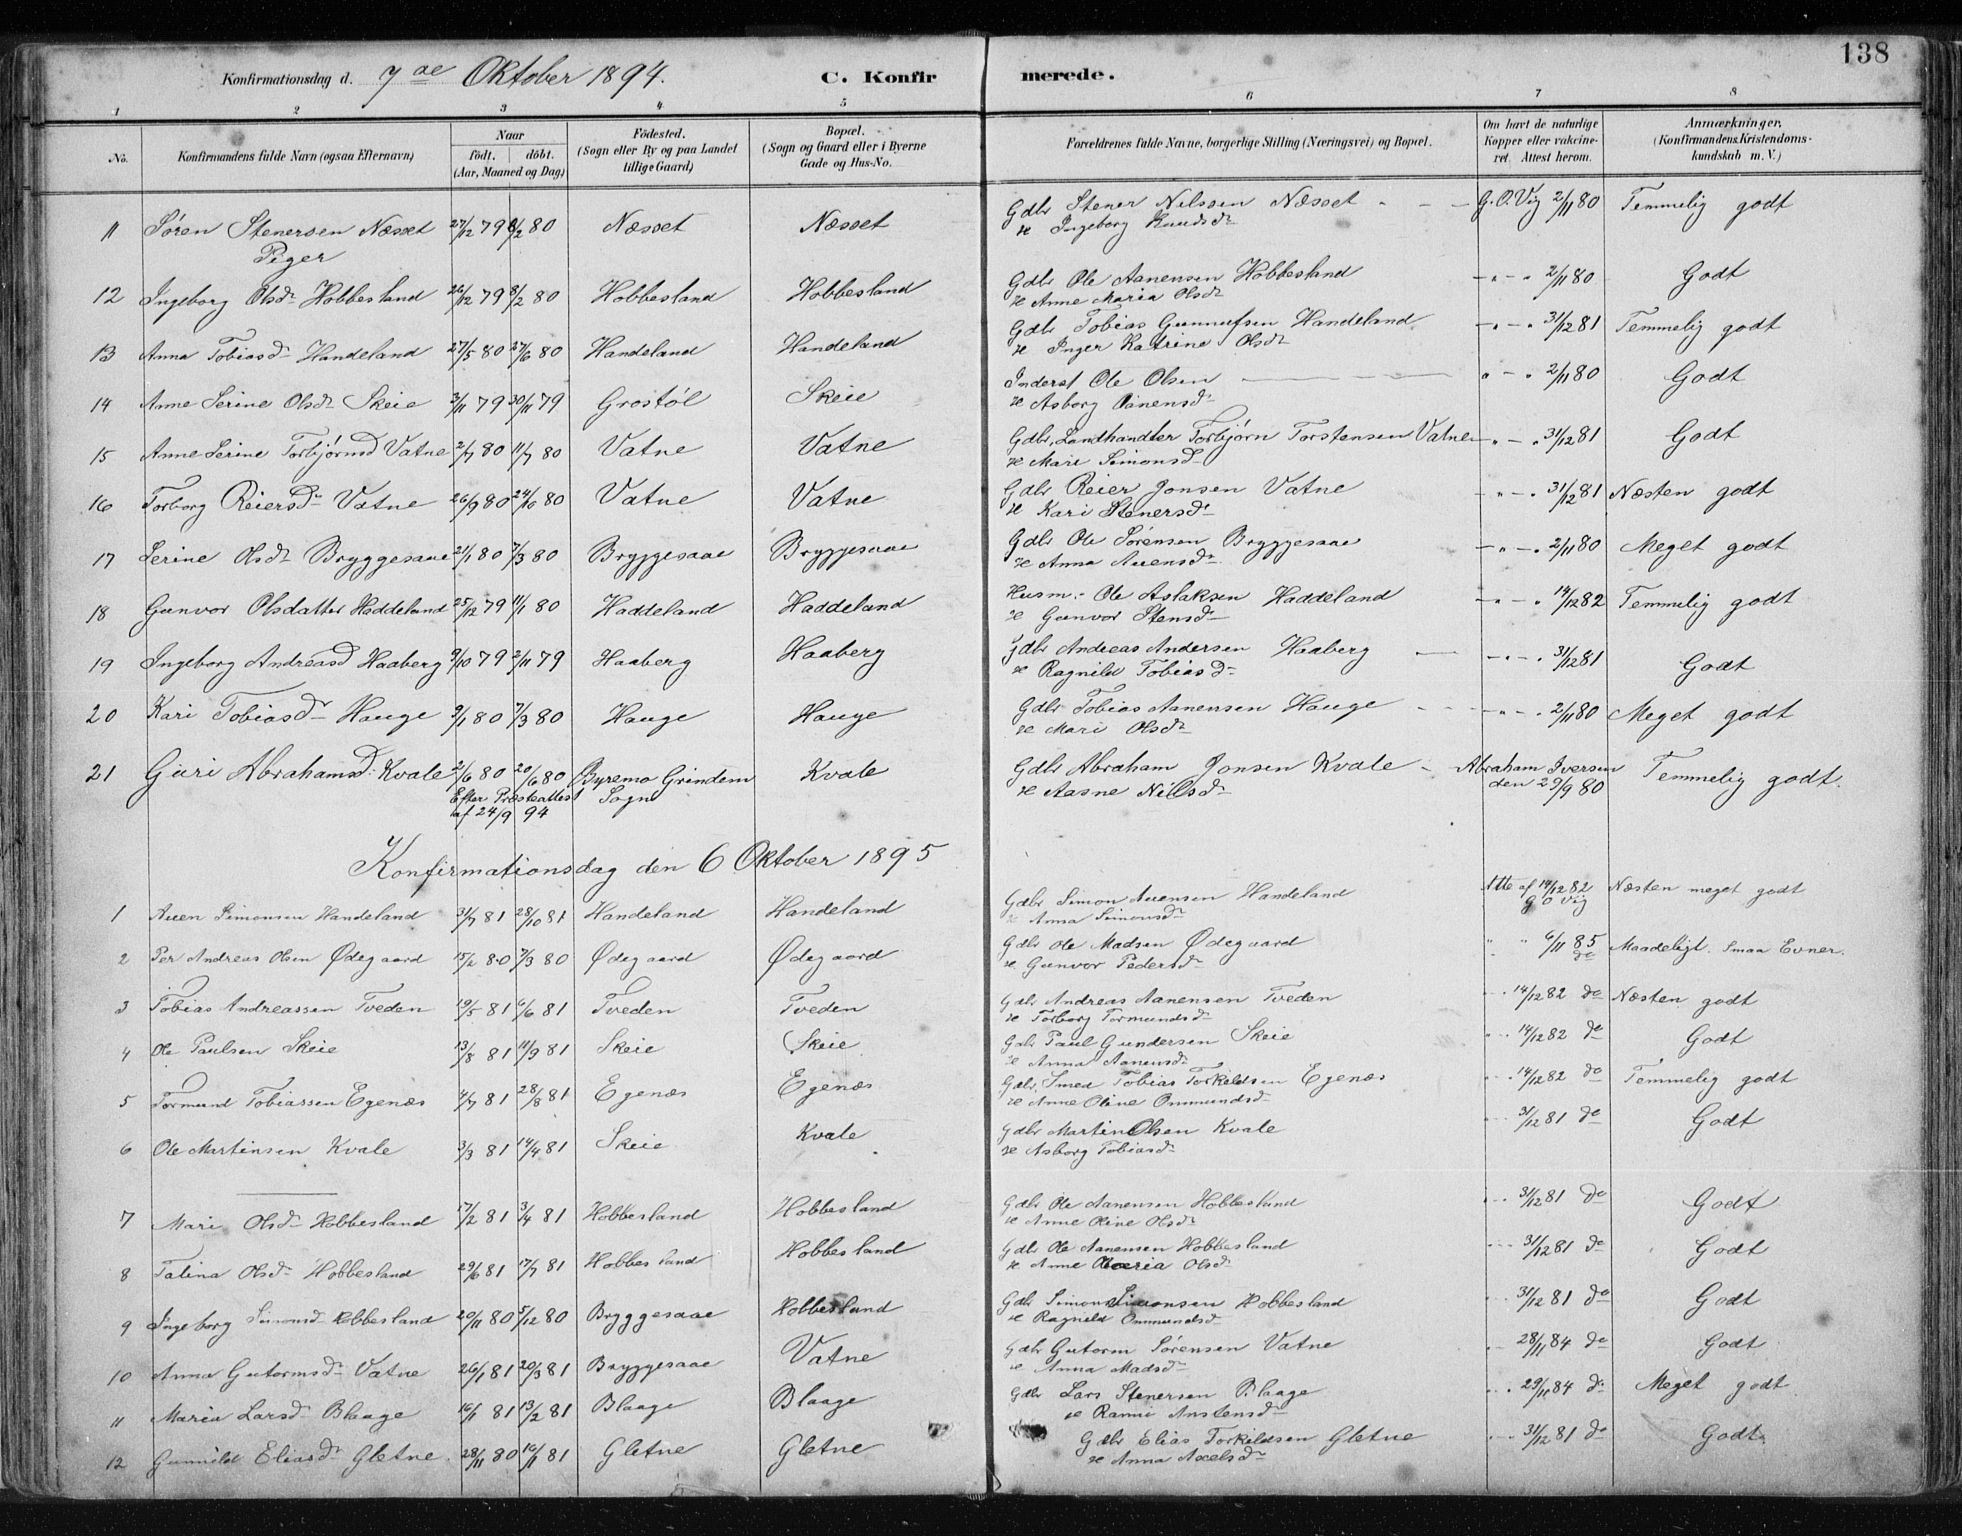 138
Konfirmationsdag d. 7de Oktober 1894. C. Konfirmerede.
1 2 3 4 5 6 7 8
No. Konfirmandens fulde Navn (ogsaa Efternavn) Naar født. døbt. (Aar, Maaned og Dag) Fødested. (Sogn eller By og paa Landet tillige Gaard) Bopæl. (Sogn og Gaard eller i Byerne Gade og Hus-No. Forældrenes fulde Navne, borgerlige Stilling (Næringsvei) og Bopæl. Om havt de naturlige Kopper eller vakcineret. Attest herom. Anmærkninger. (Konfirmandens Kristendomskundskab m. V.)
11 Søren Stenersen Næsset 27/12 79 8/2 80 Næsset Næsset Gdbr Stener Nilssen Næsset - - - G. O. Vig 2/11 80 Temmelig godt
æ Ingeborg Knudsdr
Piger
12 Ingeborg Olsdr Hobbesland 26/12 79 8/2 80 Hobbesland Hobbesland Gdbr Ole Aanensen Hobbesland - " - " 2/11 80 Godt
æ Anne Maria Olsdr
13 Anna Tobiasdr Handeland 27/5 80 27/6 80 Handeland Handeland Gdbr Tobias Gunnufsen Handeland - " - " 31/12 81 Temmelig godt
æ Inger Katrine Olsdr
14 Anne Serine Olsdr Skeie 3/11 79 30/11 79 Grostøl Skeie Inderst Ole Olsen " - " 2/11 80 Godt
æ Asborg Aanensdr
15 Anne Serine Torbjørnsd Vatne 2/7 80 11/7 80 Vatne Vatne Gdbr, Landhandler Torbjørn Torstensen Vatne - " - " 31/12 81 Godt
æ Mari Simonsd
16 Torborg Reiersdr Vatne 26/9 80 24/10 80 Vatne Vatne Gdbr Reier Jonsen Vatne - " - " 31/12 81 Næsten godt
æ Kari Stenersdr
17 Serine Olsdr Bryggesaae 21/1 80 7/3 80 Bryggesaae Bryggesaae Gdbr Ole Sørensen Bryggesaae - " - " 2/11 80 Meget godt
æ Anna Auensdr
18 Gunvor Olsdatter Haddeland 25/12 79 11/1 80 Haddeland Haddeland Husm. - Ole Aslaksen Haddeland - " - " 14/12 82 Temmelig godt
æ Gunvor Stensdr
19 Ingeborg Andreasd Haaberg 9/10 79 2/11 79 Haaberg Haaberg Gdbr Andreas Andersen Haaberg - " - " 31/12 81 Godt
æ Ragnild Tobiasdr
20 Kari Tobiasdr Hauge 9/1 80 7/3 80 Hauge Hauge Gdbr Tobias Aanensen Hauge - " - " 2/11 80 Meget godt
æ Mari Olsdr
21 Guri Abrahamsd: Kvale 2/6 80 20/6 80 Byremo Grindem Kvale Gdbr Abraham Jonsen Kvale - Abraham Iversen Temmelig godt.
Efter Præsteattest Sogn æ Aasne Nilsdr den 29/9 80
af 24/9 94
Konfirmationsdag den 6 Oktober 1895
1 Auen Simonsen Handeland 31/7 81 28/10 81 Handeland Handeland Gdbr Simon Auensen Handeland Atte af 14/12 82 Næsten meget godt
æ Anna Simonsdr G O Vig
2 Per Andreas Olsen Ødegaard 15/2 80 7/3 80 Ødegaard Ødegaard Gdbr Ole Madsen Ødegaard " " 6/11 85 do Maadeligt. Smaa Evner.
æ Gunvor Pedersdr
3 Tobias Andreassen Tveden 19/5 81 6/6 81 Tveden Tveden Gdbr Andreas Aanensen Tveden 14/12 82 do Næsten godt
æ Torborg Tormundsdr
4 Ole Paulsen Skeie 13/8 81 11/9 81 Skeie Skeie Gdbr Paul Gundersen Skeie 14/12 82 do Godt
æ Anna Aanensdr
5 Tormund Tobiassen Egenæs 4/7 81 28/8 81 Egenæs Egenæs Gdbr, Smed Tobias Torkeldsen Egenæs 14/12 82 do Temmelig godt
æ Anne Oline Ommundsdr
6 Ole Martinsen Kvale 3/3 81 14/4 81 Skeie Kvale Gdbr Martin Olsen Kvale 31/12 81 do Godt
æ Asborg Tobiasdr
7 Mari Olsdr Hobbesland 17/2 81 3/4 81 Hobbesland Hobbesland Gdbr Ole Aanensen Hobbesland 31/12 81 do Godt
æ Anne Oline Olsdr
8 Talina Olsdr Hobbesland 29/6 81 17/7 81 Hobbesland Hobbesland Gdbr Ole Aanensen Hobbesland 31/12 81 do Godt
æ Anne Maria Olsdr
9 Ingeborg Simonsdr Hobbesland 20/11 80 5/12 80 Bryggesaae Hobbesland Gdbr Simon Simonsen Hobbesland 31/12 81 do Godt
æ Ragnild Ommundsdr
10 Anna Gutormsdr Vatne 26/1 81 20/3 81 Bryggesaae Vatne Gdbr Gutorm Sørensen Vatne 28/11 84 do Godt
æ Anna Madsdr
11 Maria Larsdr Blaage 16/1 81 13/2 81 Blaage Blaage Gdbr Lars Stenersen Blaage 29/11 84 do Meget godt
æ Ranni Anstensdr
12 Gunnild Eliasdr Gletne 28/11 80 16/1 81 Gletne Gletne Gdbr Elias Torkildsen Gletne 31/12 81 do Godt
æ Anna Axelsdr